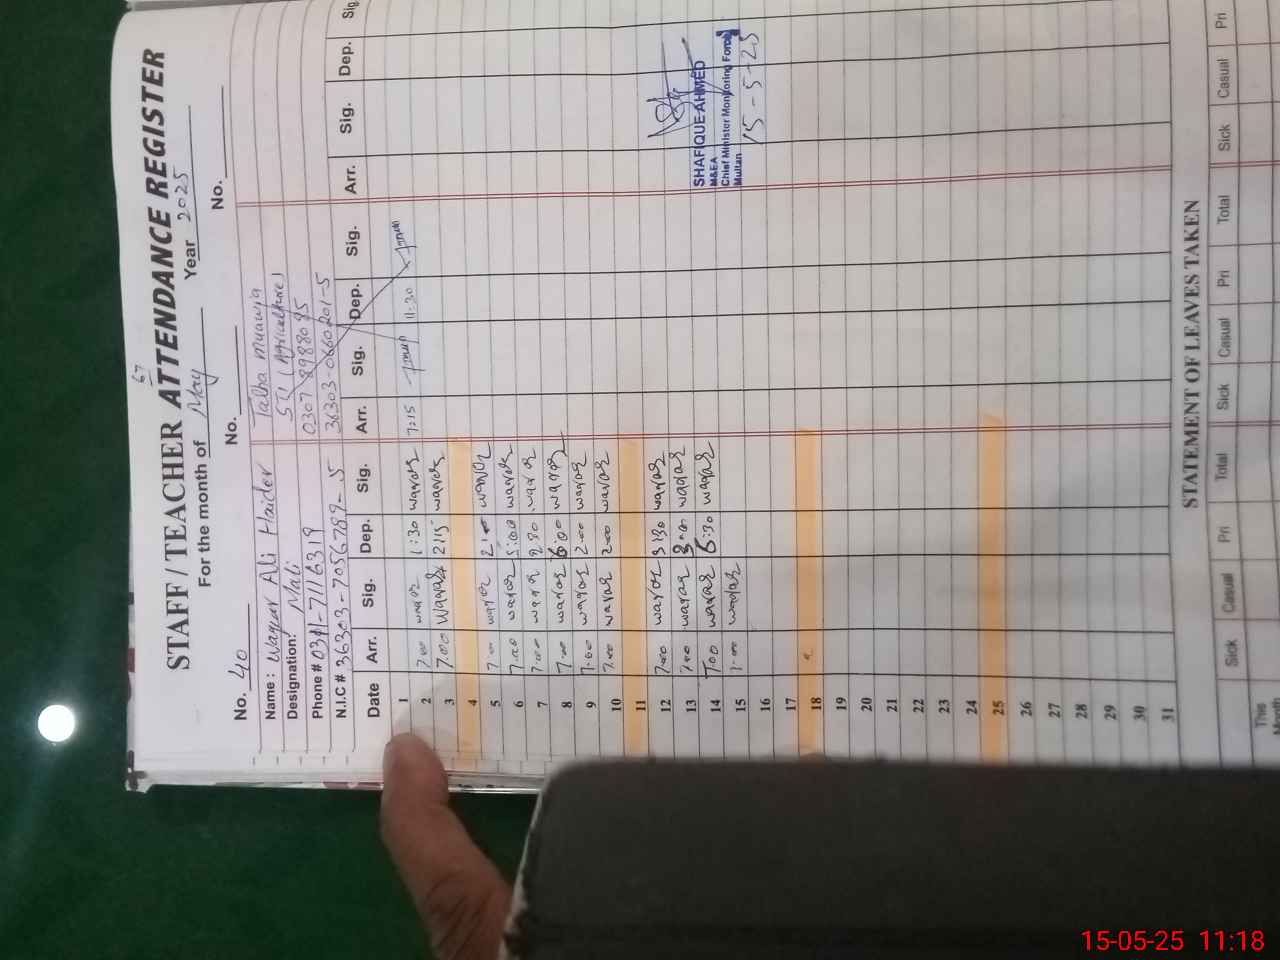 67
STAFF / TEACHER ATTENDANCE REGISTER
For the month of May Year 2025
No. 40 No. No.
Name : Waqar Ali Haider Talha Muawia
Designation: Mali STI (Agriculture)
Phone # 0311-7116319 0307 8988095
N.I.C # 36303-7056789-5 36303-0660201-5
Date Arr. Sig. Dep. Sig. Arr. Sig. Dep. Sig. Arr. Sig. Dep. Sig.
1 7:15 11:30
2 7:00 waqar 1:30 waqar
3 7:00 Waqar 2:15 waqar
4
5 7:00 waqar waqar
6 7:00 waqar 5:00 waqar
7 7:00 waqar waqar
8 7:00 waqar 6:00 waqar
9 7:00 waqar 2:00 waqar
10 7:00 waqar 2:00 waqar
11
12 7:00 waqar 3:30 waqar
13 7:00 waqar 3:00 waqar
14 7:00 waqar 6:30 waqar
15 7:00 waqar
16
17
18
19
20
21
22
23
24
25
26
27
28
29
30
31
SHAFIQUE AHMED
M&EA
Chief Minister Monitoring Force
Multan
15-5-25
STATEMENT OF LEAVES TAKEN
Sick Casual Pri Total Sick Casual Pri Total Sick Casual Pri
This
15-05-25 11:18